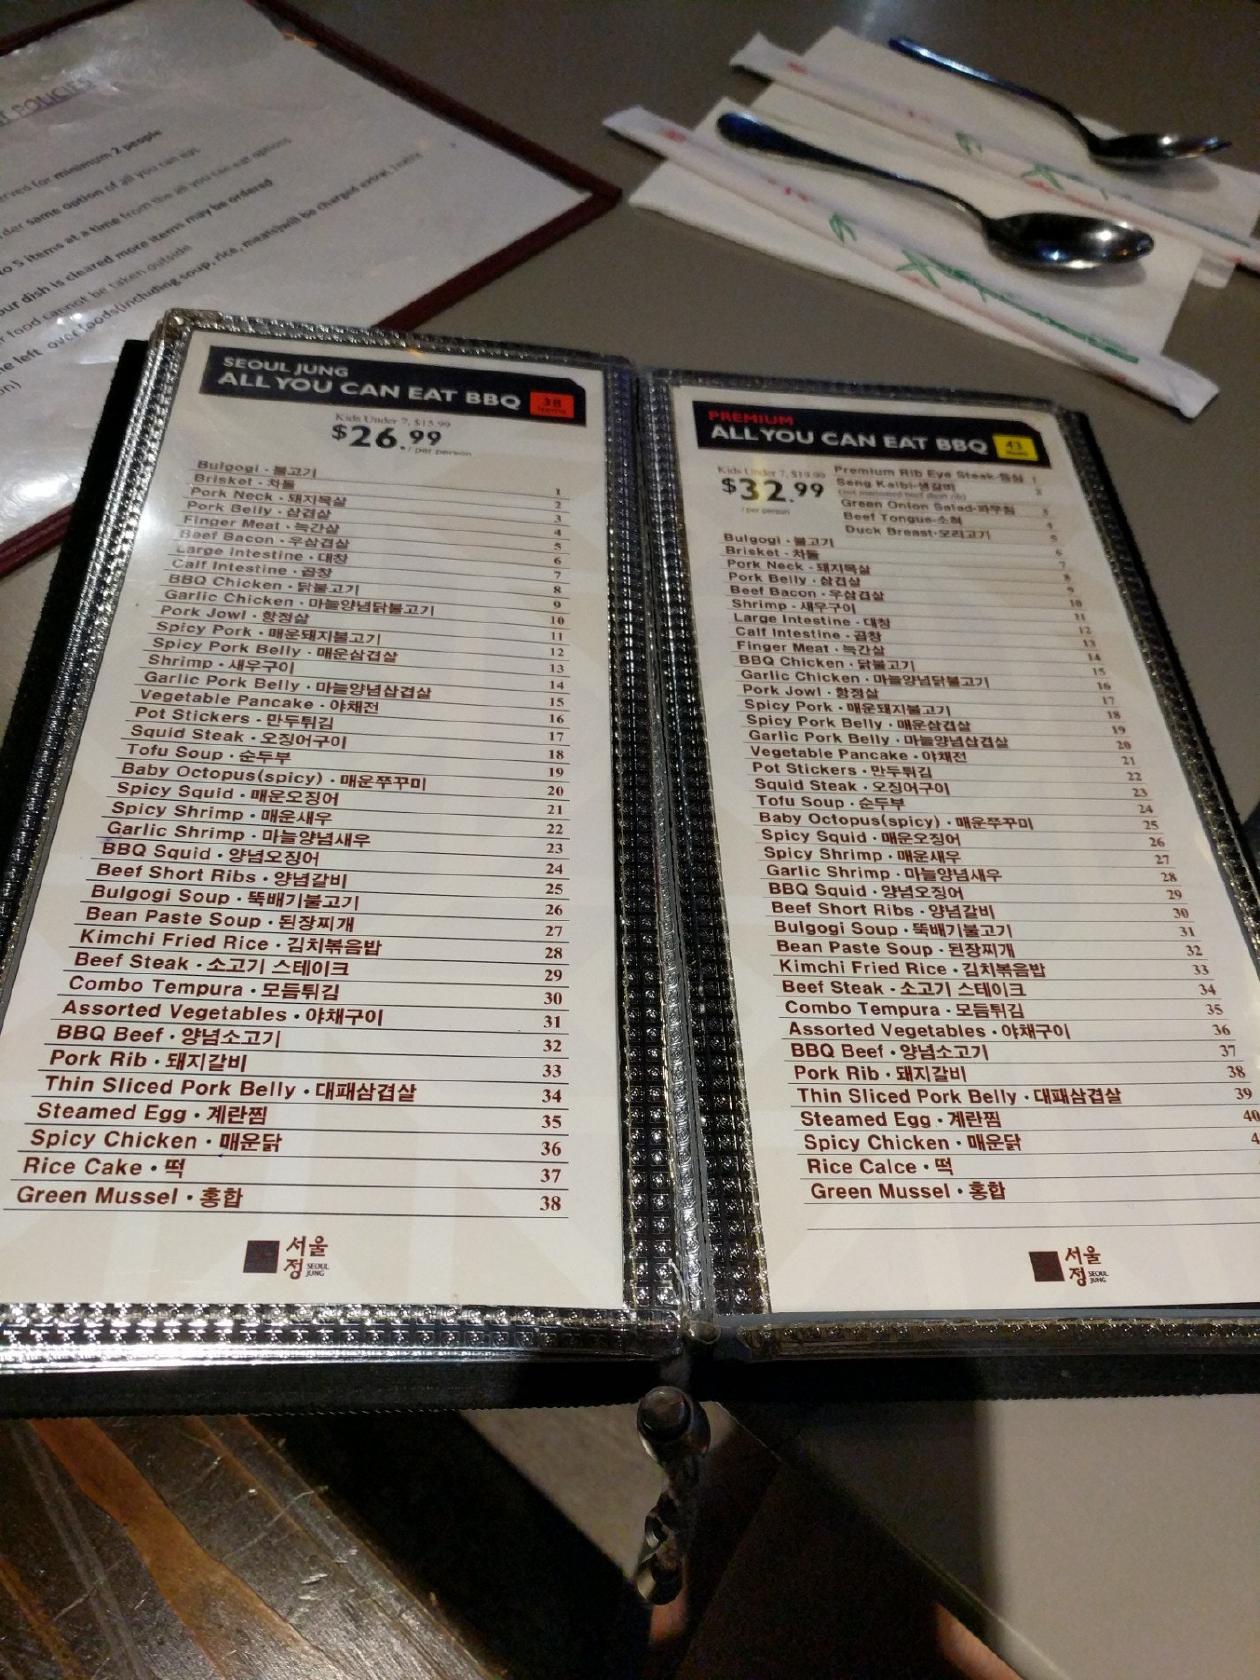 POLICIES
served for minimum 2 people
same option of all you can eat
5 items at a time from the all you can eat options
our dish is cleared more items may be ordered
food cannot be taken outside
left over foods(including soup, rice, meats)will be charged extra(
SEOUL JUNG
ALL YOU CAN EAT BBQ
38
Items
Kids Under 7, $15.99
$26.99
/ per person
Bulgogi · 불고기 1
Brisket · 차돌 2
Pork Neck · 돼지목살 3
Pork Belly · 삼겹살 4
Finger Meat · 늑간살 5
Beef Bacon · 우삼겹살 6
Large Intestine · 대창 7
Calf Intestine · 곱창 8
BBQ Chicken · 닭불고기 9
Garlic Chicken · 마늘양념닭불고기 10
Pork Jowl · 항정살 11
Spicy Pork · 매운돼지불고기 12
Spicy Pork Belly · 매운삼겹살 13
Shrimp · 새우구이 14
Garlic Pork Belly · 마늘양념삼겹살 15
Vegetable Pancake · 야채전 16
Pot Stickers · 만두튀김 17
Squid Steak · 오징어구이 18
Tofu Soup · 순두부 19
Baby Octopus(spicy) · 매운쭈꾸미 20
Spicy Squid · 매운오징어 21
Spicy Shrimp · 매운새우 22
Garlic Shrimp · 마늘양념새우 23
BBQ Squid · 양념오징어 24
Beef Short Ribs · 양념갈비 25
Bulgogi Soup · 뚝배기불고기 26
Bean Paste Soup · 된장찌개 27
Kimchi Fried Rice · 김치볶음밥 28
Beef Steak · 소고기 스테이크 29
Combo Tempura · 모듬튀김 30
Assorted Vegetables · 야채구이 31
BBQ Beef · 양념소고기 32
Pork Rib · 돼지갈비 33
Thin Sliced Pork Belly · 대패삼겹살 34
Steamed Egg · 계란찜 35
Spicy Chicken · 매운닭 36
Rice Cake · 떡 37
Green Mussel · 홍합 38
서울
정 SEOUL JUNG
PREMIUM
ALL YOU CAN EAT BBQ
43
Items
Kids Under 7, $19.99
$32.99
/ per person
Premium Rib Eye Steak-등심 1
Seng Kalbi-생갈비 2
(not marinated beef short rib)
Green Onion Salad-파무침 3
Beef Tongue-소혀 4
Duck Breast-오리고기 5
Bulgogi · 불고기 6
Brisket · 차돌 7
Pork Neck · 돼지목살 8
Pork Belly · 삼겹살 9
Beef Bacon · 우삼겹살 10
Shrimp · 새우구이 11
Large Intestine · 대창 12
Calf Intestine · 곱창 13
Finger Meat · 늑간살 14
BBQ Chicken · 닭불고기 15
Garlic Chicken · 마늘양념닭불고기 16
Pork Jowl · 항정살 17
Spicy Pork · 매운돼지불고기 18
Spicy Pork Belly · 매운삼겹살 19
Garlic Pork Belly · 마늘양념삼겹살 20
Vegetable Pancake · 야채전 21
Pot Stickers · 만두튀김 22
Squid Steak · 오징어구이 23
Tofu Soup · 순두부 24
Baby Octopus(spicy) · 매운쭈꾸미 25
Spicy Squid · 매운오징어 26
Spicy Shrimp · 매운새우 27
Garlic Shrimp · 마늘양념새우 28
BBQ Squid · 양념오징어 29
Beef Short Ribs · 양념갈비 30
Bulgogi Soup · 뚝배기불고기 31
Bean Paste Soup · 된장찌개 32
Kimchi Fried Rice · 김치볶음밥 33
Beef Steak · 소고기 스테이크 34
Combo Tempura · 모듬튀김 35
Assorted Vegetables · 야채구이 36
BBQ Beef · 양념소고기 37
Pork Rib · 돼지갈비 38
Thin Sliced Pork Belly · 대패삼겹살 39
Steamed Egg · 계란찜 40
Spicy Chicken · 매운닭 4
Rice Calce · 떡
Green Mussel · 홍합
서울
정 SEOUL JUNG